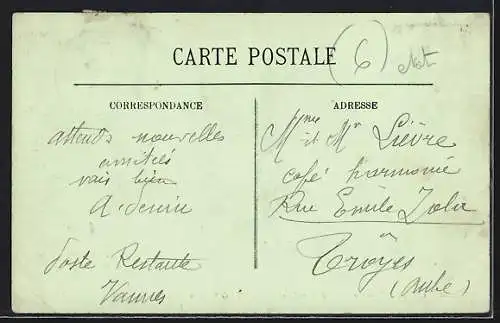 CARTE POSTALE
6
CORRESPONDANCE
attends nouvelles
amitiés
vais bien
Poste Restante
Vannes
ADRESSE
Mme et Mr Lièvre
café harmonie
Rue Emile Zola
Troÿes
(Aube)